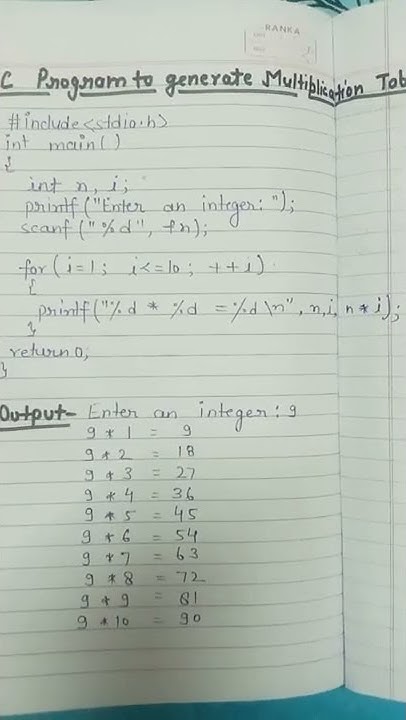 RANKA
C Program to generate Multiplication Tab
#include<stdio.h>
int main()
{
int n, i;
printf("Enter an integer: ");
scanf("%d", &n);
for(i=1; i<=10; ++i)
{
printf("%d * %d = %d \n", n,i, n*i);
}
return 0;
}
Output- Enter an integer: 9
9 * 1 = 9
9 * 2 = 18
9 * 3 = 27
9 * 4 = 36
9 * 5 = 45
9 * 6 = 54
9 * 7 = 63
9 * 8 = 72
9 * 9 = 81
9 * 10 = 90